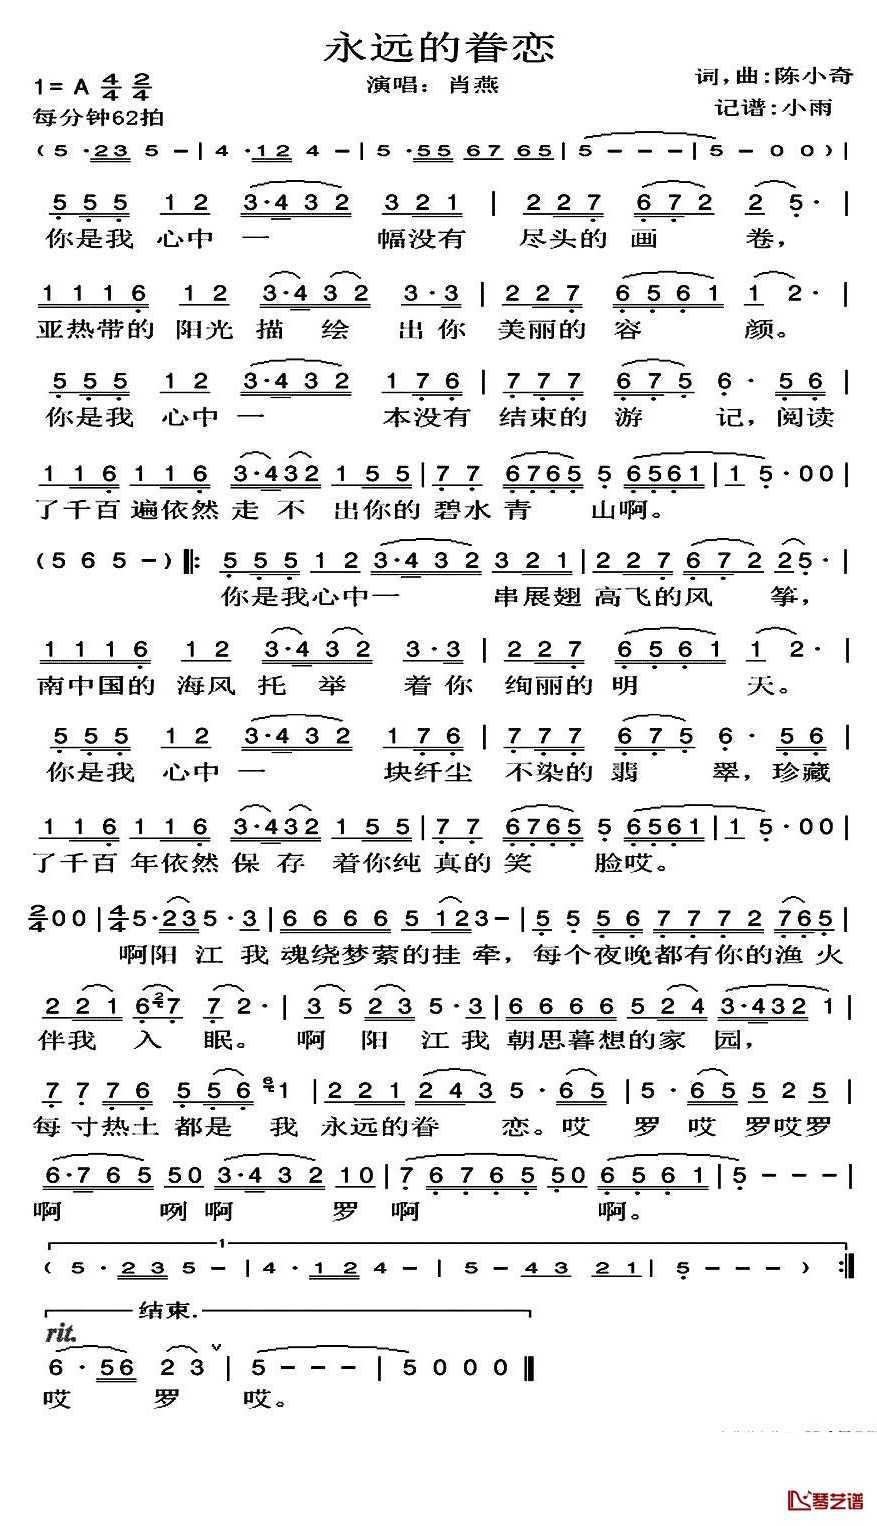 永远的眷恋
1= A 4/4 2/4
演唱：肖燕
词,曲:陈小奇
每分钟62拍
记谱:小雨
( 5 ·23 5 − | 4 ·12 4 − | 5 ·55 67 65 | 5 − − − | 5 − 0 0 ) |
5 5 5 1 2 3·4 3 2 3 2 1 | 2 2 7 6 7 2 2 5· |
你是我 心中 一 幅没有 尽头的 画 卷,
1 1 1 6 1 2 3·4 3 2 3·3 | 2 2 7 6 5 6 1 1 2· |
亚热带的 阳光 描 绘 出你 美丽的 容 颜。
5 5 5 1 2 3·4 3 2 1 7 6 | 7 7 7 6 7 5 6· 5 6 |
你是我 心中 一 本没有 结束的 游 记, 阅读
1 1 6 1 1 6 3·432 1 5 5 | 7 7 6765 5 6561 | 1 5·00 |
了千百 遍依然 走 不 出你的 碧水 青 山啊。
( 5 6 5 − ) ‖: 5 5 5 1 2 3·4 3 2 3 2 1 | 2 2 7 6 7 2 25· |
你是我心中一 串展翅 高飞的风 筝,
1 1 1 6 1 2 3·4 3 2 3·3 | 2 2 7 6 5 6 1 1 2· |
南中国的 海风 托 举 着你 绚丽的 明 天。
5 5 5 1 2 3·4 3 2 1 7 6 | 7 7 7 6 7 5 6· 5 6 |
你是我 心中 一 块纤尘 不染的 翡 翠, 珍藏
1 1 6 1 1 6 3·432 1 5 5 | 7 7 6765 5 6561 | 1 5·00 |
了千百 年依然 保 存 着你纯 真的 笑 脸哎。
2/4 0 0 | 4/4 5·235·3 | 6 6 6 6 5 1 23− | 5 5 5 6 7 7 7 2 765 |
啊阳 江 我 魂绕梦萦的挂 牵, 每个夜晚都有你的渔 火
2 2 1 6 2 7 7 2· | 3 5 2 3 5·3 | 6 6 6 6 5 2 4 3·432 1 |
伴我 入 眠。 啊 阳 江 我 朝思暮想的家 园,
7 7 7 6 5 5 6 6 1 | 2 2 1 2 4 3 5· 6 5 | 5· 6 5 5 2 5 |
每 寸热土 都是 我 永远的眷 恋。哎 罗 哎 罗哎罗
6·7 6 5 50 3·4 3 2 10 | 7 6 7 6 5 50 6 5 6 1 | 5 − − − |
啊 咧 啊 罗 啊 啊。
1
( 5 · 2 3 5 − | 4 · 1 2 4 − | 5 − 4 3 2 1 | 5 − − − ) :‖
结束.
rit.
6 · 5 6 2 3 ˅ | 5 − − − | 5 0 0 0 ‖
哎 罗 哎。
琴艺谱